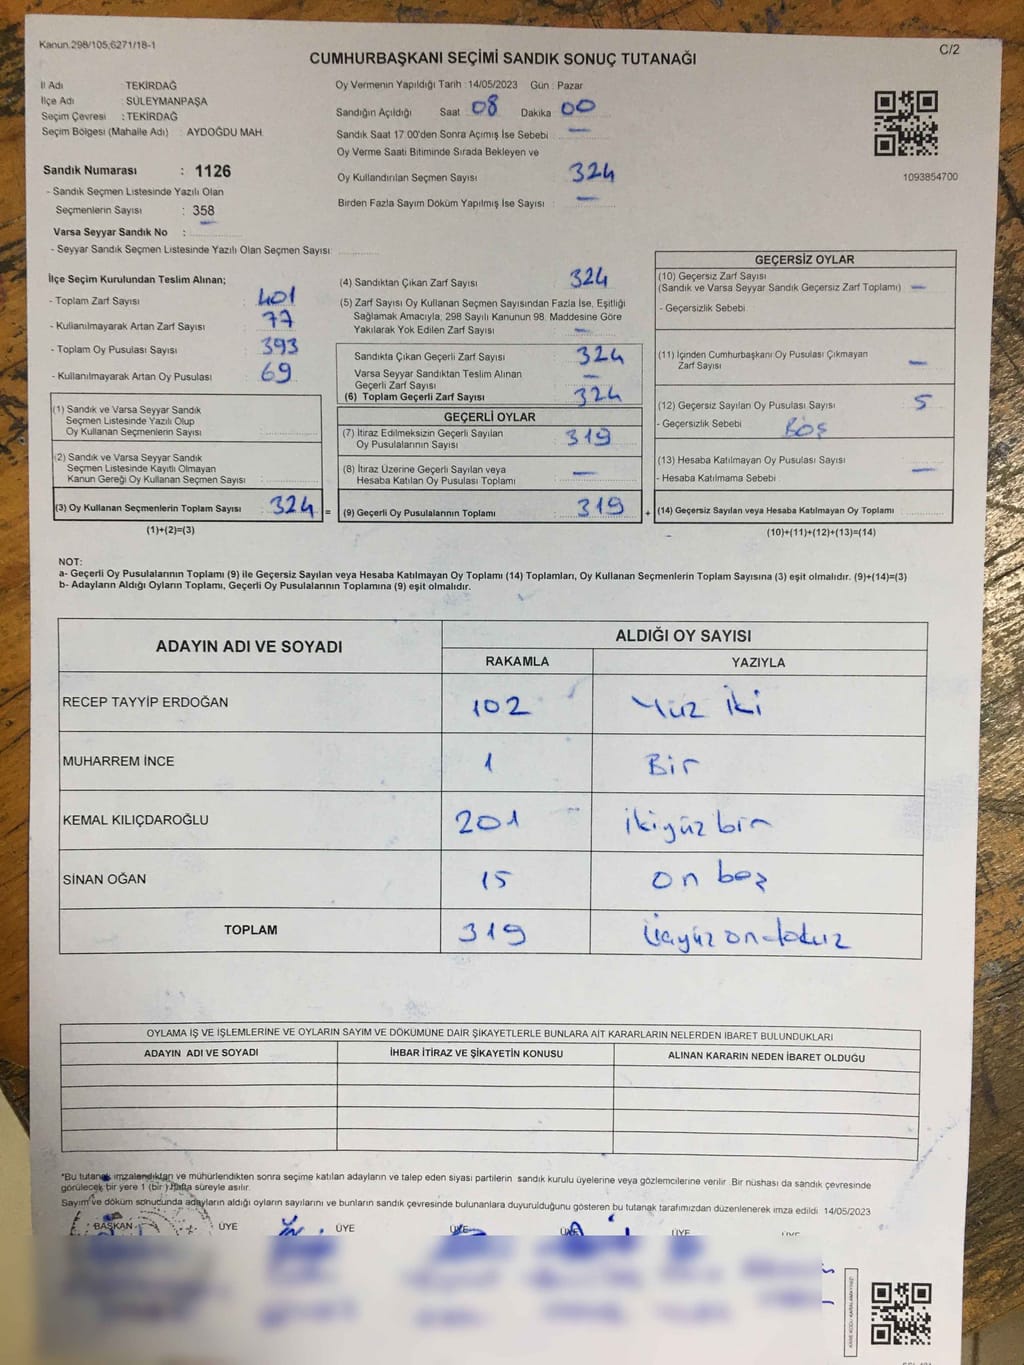 Kanun.298/105,6271/18-1
C/2
CUMHURBAŞKANI SEÇİMİ SANDIK SONUÇ TUTANAĞI
İl Adı : TEKİRDAĞ
İlçe Adı : SÜLEYMANPAŞA
Seçim Çevresi : TEKİRDAĞ
Seçim Bölgesi (Mahalle Adı) : AYDOĞDU MAH.
Sandık Numarası : 1126
- Sandık Seçmen Listesinde Yazılı Olan
Seçmenlerin Sayısı : 358
Varsa Seyyar Sandık No : —
- Seyyar Sandık Seçmen Listesinde Yazılı Olan Seçmen Sayısı:
Oy Vermenin Yapıldığı Tarih :14/05/2023 Gün : Pazar
Sandığın Açıldığı Saat 08 Dakika 00
Sandık Saat 17.00'den Sonra Açımış İse Sebebi —
Oy Verme Saati Bitiminde Sırada Bekleyen ve
Oy Kullandırılan Seçmen Sayısı 324
Birden Fazla Sayım Döküm Yapılmış İse Sayısı —
1093854700
İlçe Seçim Kurulundan Teslim Alınan;
- Toplam Zarf Sayısı 401
- Kullanılmayarak Artan Zarf Sayısı 77
- Toplam Oy Pusulası Sayısı 393
- Kullanılmayarak Artan Oy Pusulası 69
(1) Sandık ve Varsa Seyyar Sandık
Seçmen Listesinde Yazılı Olup
Oy Kullanan Seçmenlerin Sayısı
(2) Sandık ve Varsa Seyyar Sandık
Seçmen Listesinde Kayıtlı Olmayan
Kanun Gereği Oy Kullanan Seçmen Sayısı
(3) Oy Kullanan Seçmenlerin Toplam Sayısı 324 =
(1)+(2)=(3)
(4) Sandıktan Çıkan Zarf Sayısı 324
(5) Zarf Sayısı Oy Kullanan Seçmen Sayısından Fazla İse, Eşitliği
Sağlamak Amacıyla, 298 Sayılı Kanunun 98. Maddesine Göre
Yakılarak Yok Edilen Zarf Sayısı —
Sandıkta Çıkan Geçerli Zarf Sayısı 324
Varsa Seyyar Sandıktan Teslim Alınan
Geçerli Zarf Sayısı —
(6) Toplam Geçerli Zarf Sayısı 324
GEÇERLİ OYLAR
(7) İtiraz Edilmeksizin Geçerli Sayılan
Oy Pusulalarının Sayısı 319
(8) İtiraz Üzerine Geçerli Sayılan veya
Hesaba Katılan Oy Pusulası Toplamı —
(9) Geçerli Oy Pusulalarının Toplamı 319 +
GEÇERSİZ OYLAR
(10) Geçersiz Zarf Sayısı
(Sandık ve Varsa Seyyar Sandık Geçersiz Zarf Toplamı) —
- Geçersizlik Sebebi
(11) İçinden Cumhurbaşkanı Oy Pusulası Çıkmayan
Zarf Sayısı —
(12) Geçersiz Sayılan Oy Pusulası Sayısı 5
- Geçersizlik Sebebi Boş
(13) Hesaba Katılmayan Oy Pusulası Sayısı —
- Hesaba Katılmama Sebebi
(14) Geçersiz Sayılan veya Hesaba Katılmayan Oy Toplamı
(10)+(11)+(12)+(13)=(14)
NOT:
a- Geçerli Oy Pusulalarının Toplamı (9) ile Geçersiz Sayılan veya Hesaba Katılmayan Oy Toplamı (14) Toplamları, Oy Kullanan Seçmenlerin Toplam Sayısına (3) eşit olmalıdır. (9)+(14)=(3)
b- Adayların Aldığı Oyların Toplamı, Geçerli Oy Pusulalarının Toplamına (9) eşit olmalıdır.
ADAYIN ADI VE SOYADI ALDIĞI OY SAYISI
RAKAMLA YAZIYLA
RECEP TAYYİP ERDOĞAN 102 Yüz iki
MUHARREM İNCE 1 Bir
KEMAL KILIÇDAROĞLU 201 ikiyüz bir
SİNAN OĞAN 15 on beş
TOPLAM 319 Üçyüz on dokuz
OYLAMA İŞ VE İŞLEMLERİNE VE OYLARIN SAYIM VE DÖKÜMÜNE DAİR ŞİKAYETLERLE BUNLARA AİT KARARLARIN NELERDEN İBARET BULUNDUKLARI
ADAYIN ADI VE SOYADI İHBAR İTİRAZ VE ŞİKAYETİN KONUSU ALINAN KARARIN NEDEN İBARET OLDUĞU
*Bu tutanak imzalendıktan ve mühürlendikten sonra seçime katılan adayların ve talep eden siyasi partilerin sandık kurulu üyelerine veya gözlemcilerine verilir. Bir nüshası da sandık çevresinde
görülecek bir yere 1 (bir ) Hafta süreyle asılır.
Sayım ve döküm sonucunda adayların aldığı oyların sayılarını ve bunların sandık çevresinde bulunanlara duyurulduğunu gösteren bu tutanak tarafımızdan düzenlenerek imza edildi. 14/05/2023
BAŞKAN ÜYE ÜYE ÜYE ÜYE ÜYE